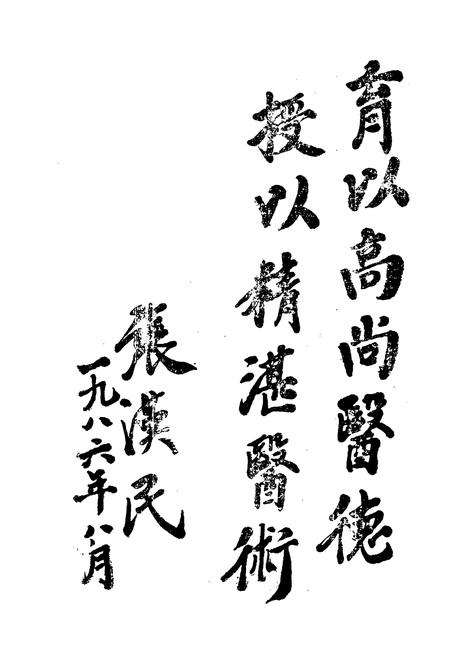 育以高尚醫德
授以精湛醫術
張漢民
一九八六年八月